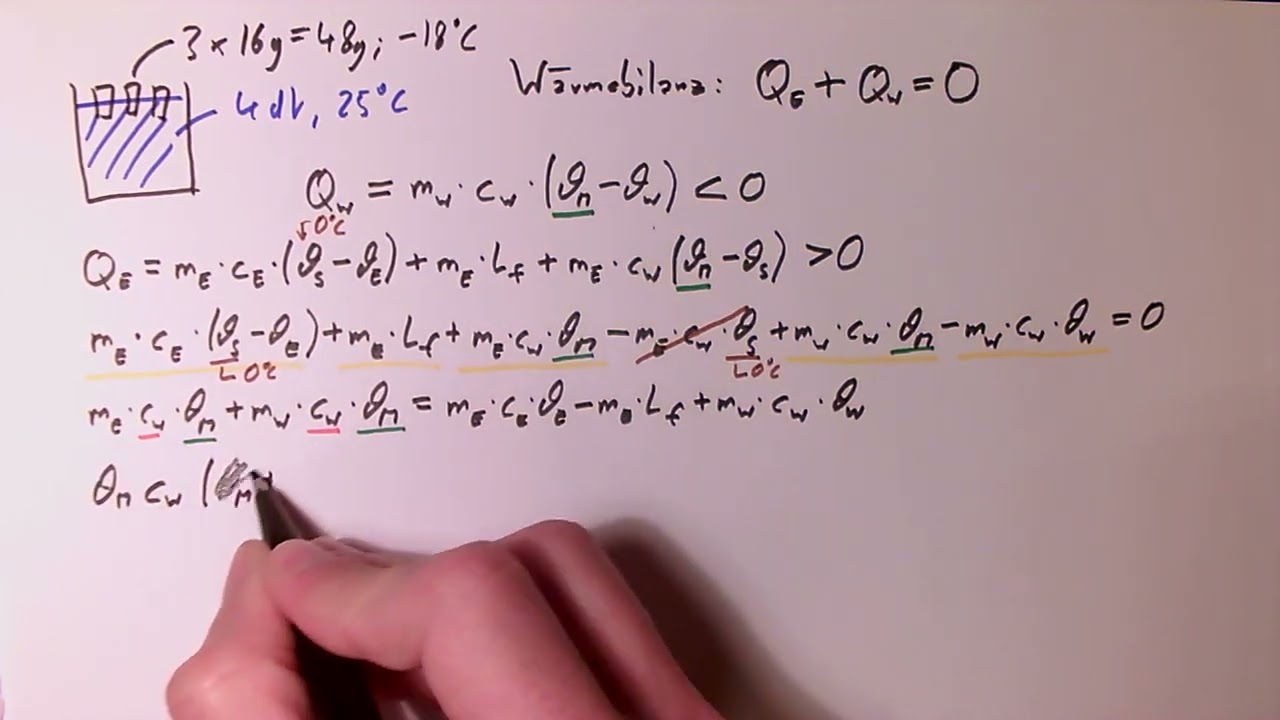 3 × 16g = 48g; -18°C
4 dl, 25°C
Wärmebilanz: Q_E + Q_W = 0
Q_W = m_W · c_W · (ϑ_M - ϑ_W) < 0
↓0°C
Q_E = m_E · c_E · (ϑ_S - ϑ_E) + m_E · L_f + m_E · c_W (ϑ_M - ϑ_S) > 0
m_E · c_E · (ϑ_S - ϑ_E) + m_E · L_f + m_E · c_W · ϑ_M - m_E · c_W · ϑ_S + m_W · c_W · ϑ_M - m_W · c_W · ϑ_W = 0
∟0°C ∟0°C
m_E · c_W · ϑ_M + m_W · c_W · ϑ_M = m_E · c_E · ϑ_E - m_E · L_f + m_W · c_W · ϑ_W
ϑ_M c_W (